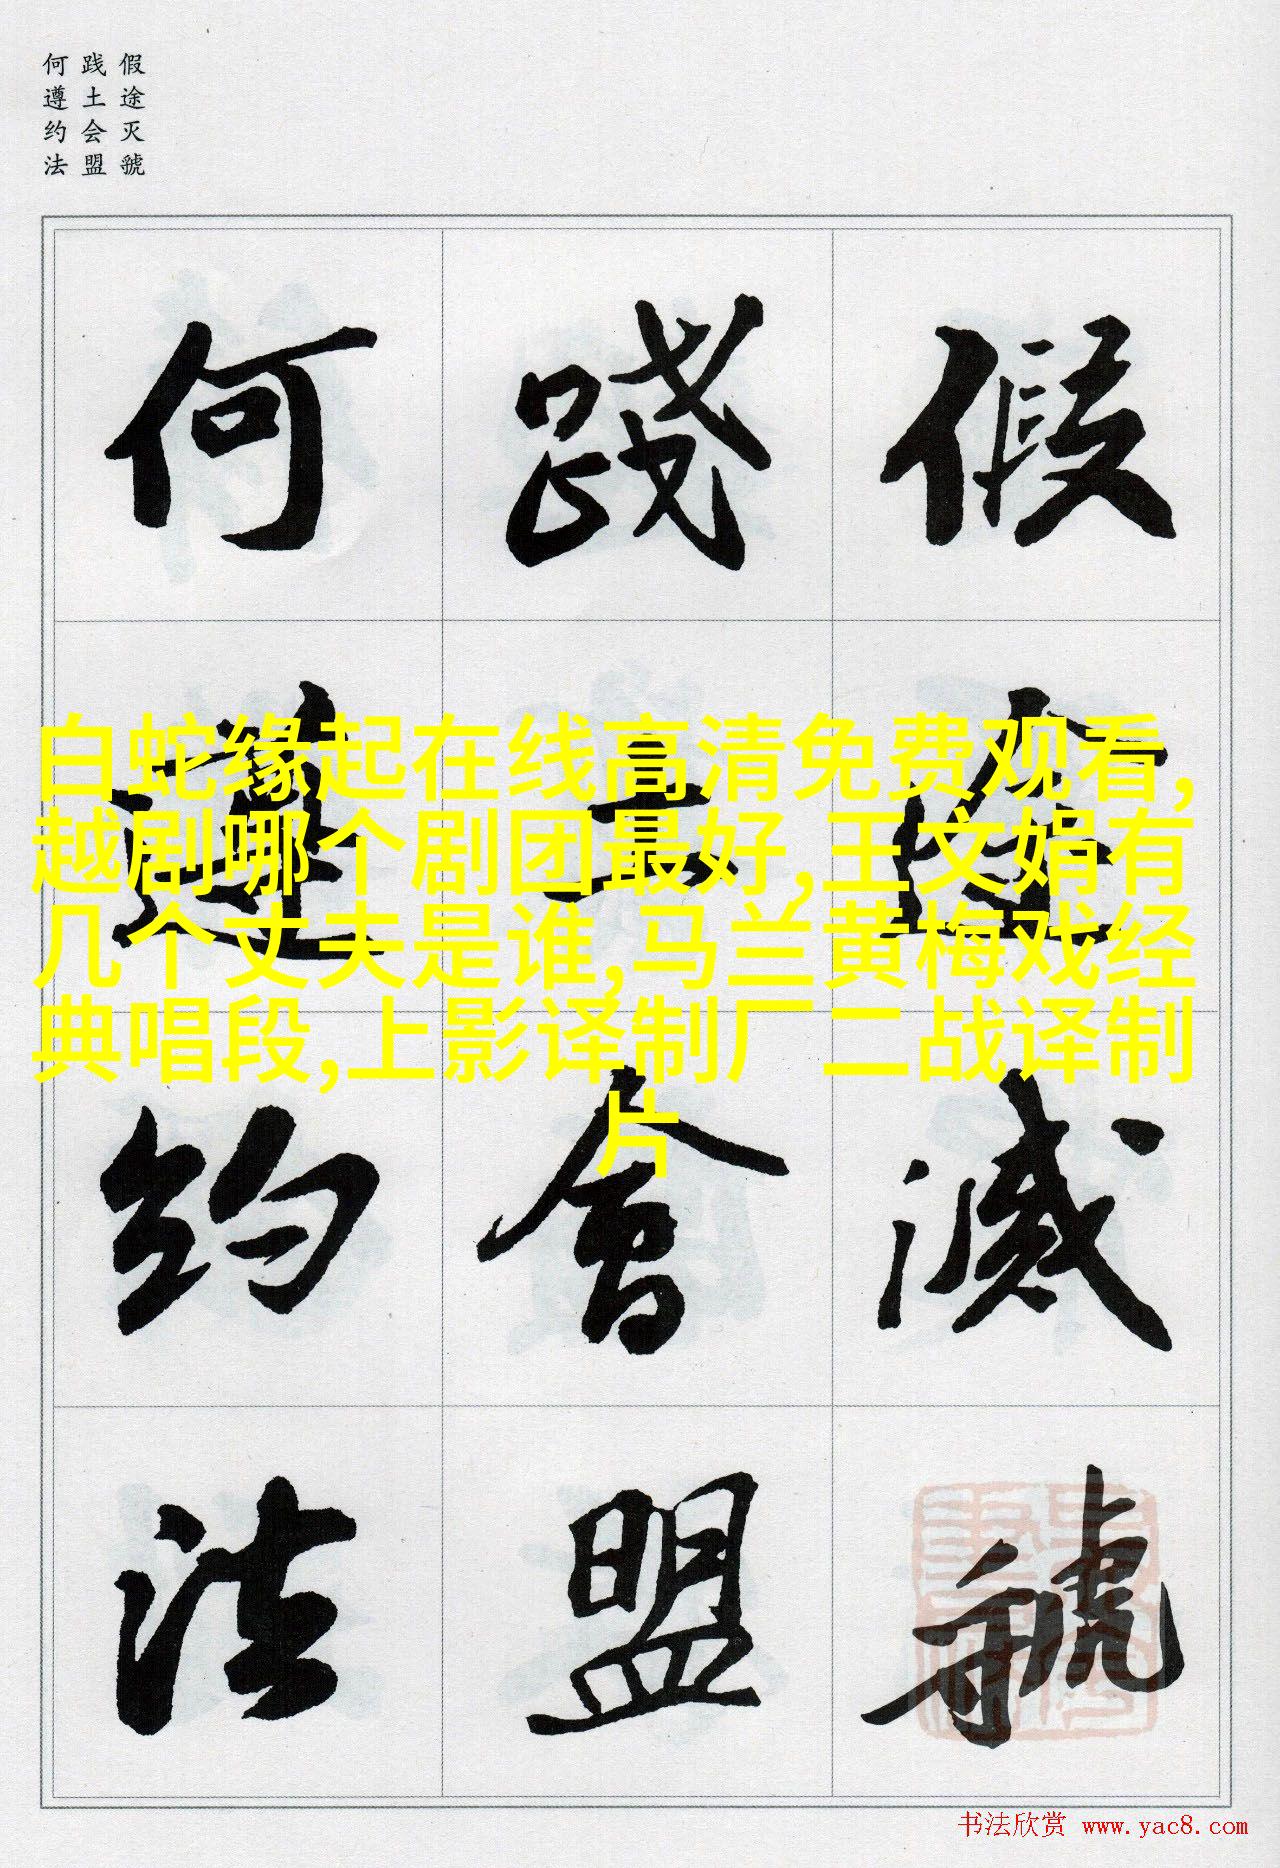 假途灭虢
践土会盟
何遵约法
假途灭虢
践土會盟
何遵约法
白蛇缘起在线高清免费观看,
越剧哪个剧团最好,王文娟有
几个丈夫是谁,马兰黄梅戏经
典唱段,上影译制厂二战译制
片
书法欣赏 www.yac8.com